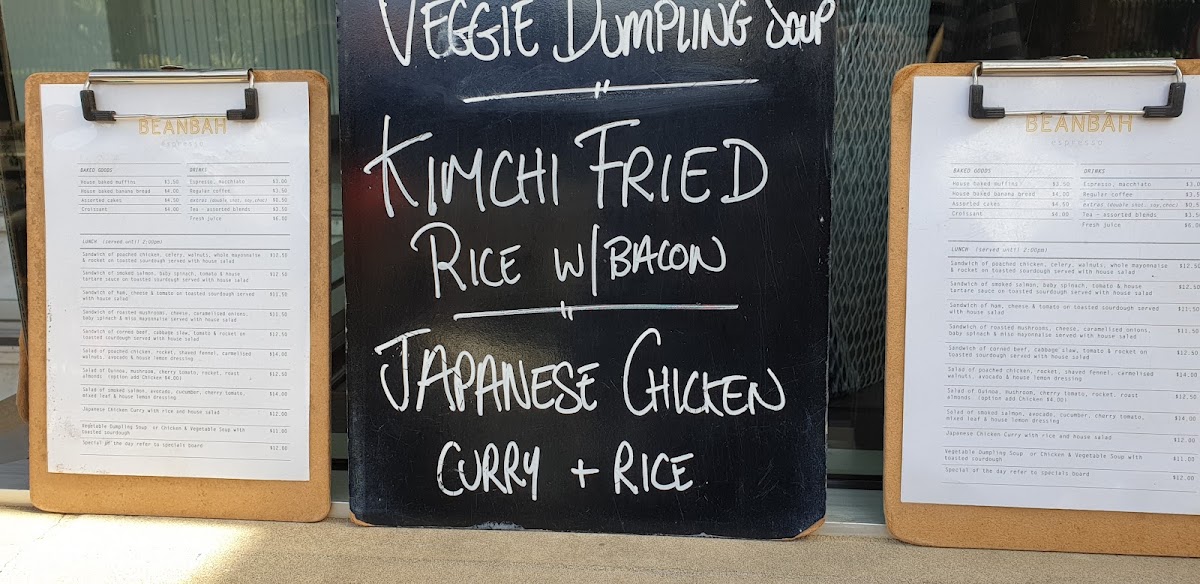 BEANBAH
espresso
BAKED GOODS
House baked muffins $3.50
House baked banana bread $4.00
Assorted cakes $4.50
Croissant $4.00
DRINKS
Espresso, macchiato $3.00
Regular coffee $3.50
extras (double shot, soy,choc) $0.50
Tea - assorted blends $3.50
Fresh juice $6.00
LUNCH (served until 2:00pm)
Sandwich of poached chicken, celery, walnuts, whole mayonnaise $12.50
& rocket on toasted sourdough served with house salad
Sandwich of smoked salmon, baby spinach, tomato & house $12.50
tartare sauce on toasted sourdough served with house salad
Sandwich of ham, cheese & tomato on toasted sourdough served $11.50
with house salad
Sandwich of roasted mushrooms, cheese, caramelised onions, $11.50
baby spinach & miso mayonnaise served with house salad
Sandwich of corned beef, cabbage slaw, tomato & rocket on $12.50
toasted sourdough served with house salad
Salad of poached chicken, rocket, shaved fennel, carmelised $14.00
walnuts, avocado & house lemon dressing
Salad of Quinoa, mushroom, cherry tomato, rocket, roast $12.50
almonds (option add Chicken $4.00)
Salad of smoked salmon, avocado, cucumber, cherry tomato, $14.00
mixed leaf & house lemon dressing
Japanese Chicken Curry with rice and house salad $12.00
Vegetable Dumpling Soup or Chicken & Vegetable Soup with $11.00
toasted sourdough
Special of the day refer to specials board $12.00
VEGGIE DUMPLING SOUP
KIMCHI FRIED
RICE W/ BACON
JAPANESE CHICKEN
CURRY + RICE
BEANBAH
espresso
BAKED GOODS
House baked muffins $3.50
House baked banana bread $4.00
Assorted cakes $4.50
Croissant $4.00
DRINKS
Espresso, macchiato $3.0
Regular coffee $3.5
extras (double shot, soy,choc) $0.5
Tea - assorted blends $3.5
Fresh juice $6.0
LUNCH (served until 2:00pm)
Sandwich of poached chicken, celery, walnuts, whole mayonnaise $12.50
& rocket on toasted sourdough served with house salad
Sandwich of smoked salmon, baby spinach, tomato & house $12.50
tartare sauce on toasted sourdough served with house salad
Sandwich of ham, cheese & tomato on toasted sourdough served $11.50
with house salad
Sandwich of roasted mushrooms, cheese, caramelised onions, $11.50
baby spinach & miso mayonnaise served with house salad
Sandwich of corned beef, cabbage slaw, tomato & rocket on $12.50
toasted sourdough served with house salad
Salad of poached chicken, rocket, shaved fennel, carmelised $14.00
walnuts, avocado & house lemon dressing
Salad of Quinoa, mushroom, cherry tomato, rocket, roast $12.50
almonds (option add Chicken $4.00)
Salad of smoked salmon, avocado, cucumber, cherry tomato, $14.00
mixed leaf & house lemon dressing
Japanese Chicken Curry with rice and house salad $12.00
Vegetable Dumpling Soup or Chicken & Vegetable Soup with $11.00
toasted sourdough
Special of the day refer to specials board $12.00